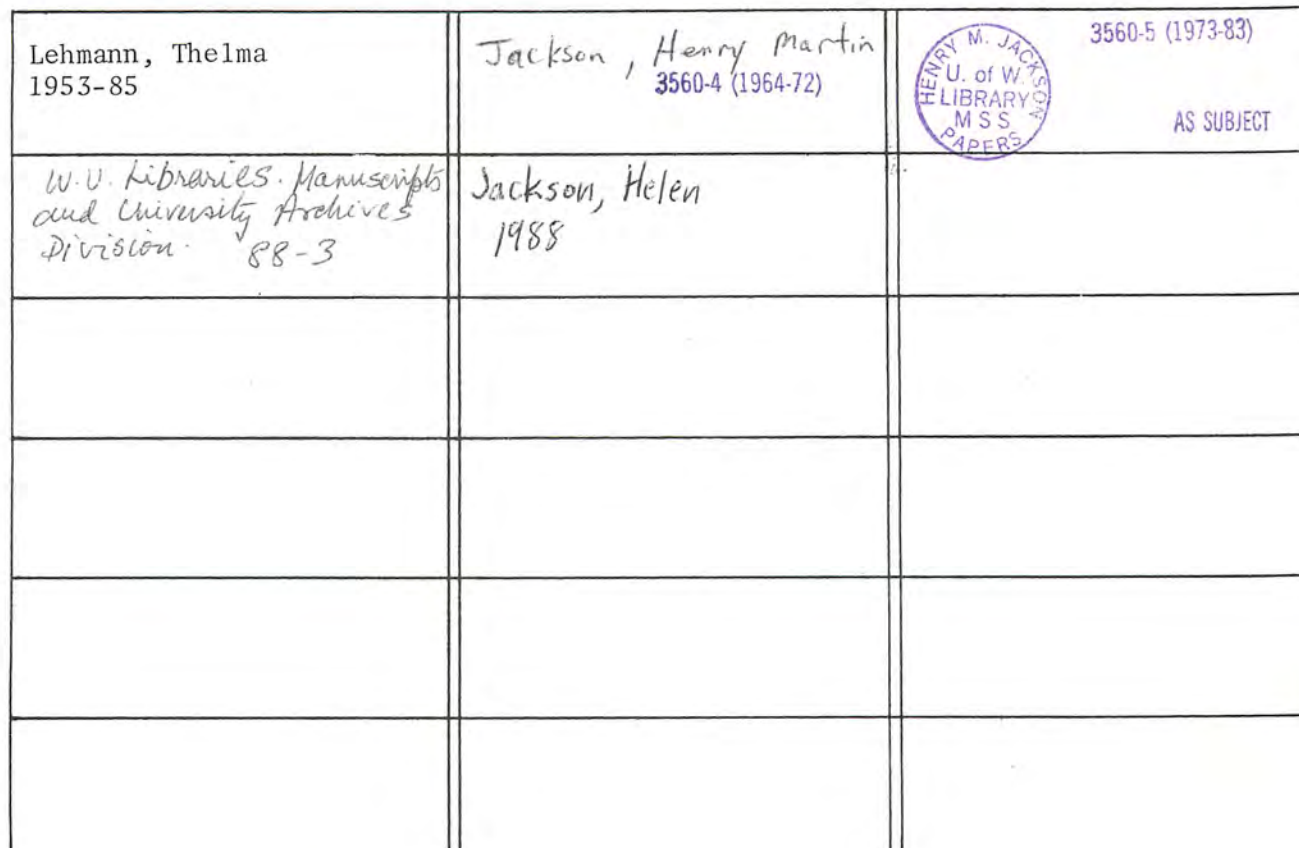 Lehmann, Thelma
1953-85
Jackson, Henry Martin
3560-4 (1964-72)
HENRY M. JACKSON
U. of W.
LIBRARY
MSS
PAPERS
3560-5 (1973-83)
AS SUBJECT
W.U. Libraries. Manuscripts
and University Archives
Division. 88-3
Jackson, Helen
1988